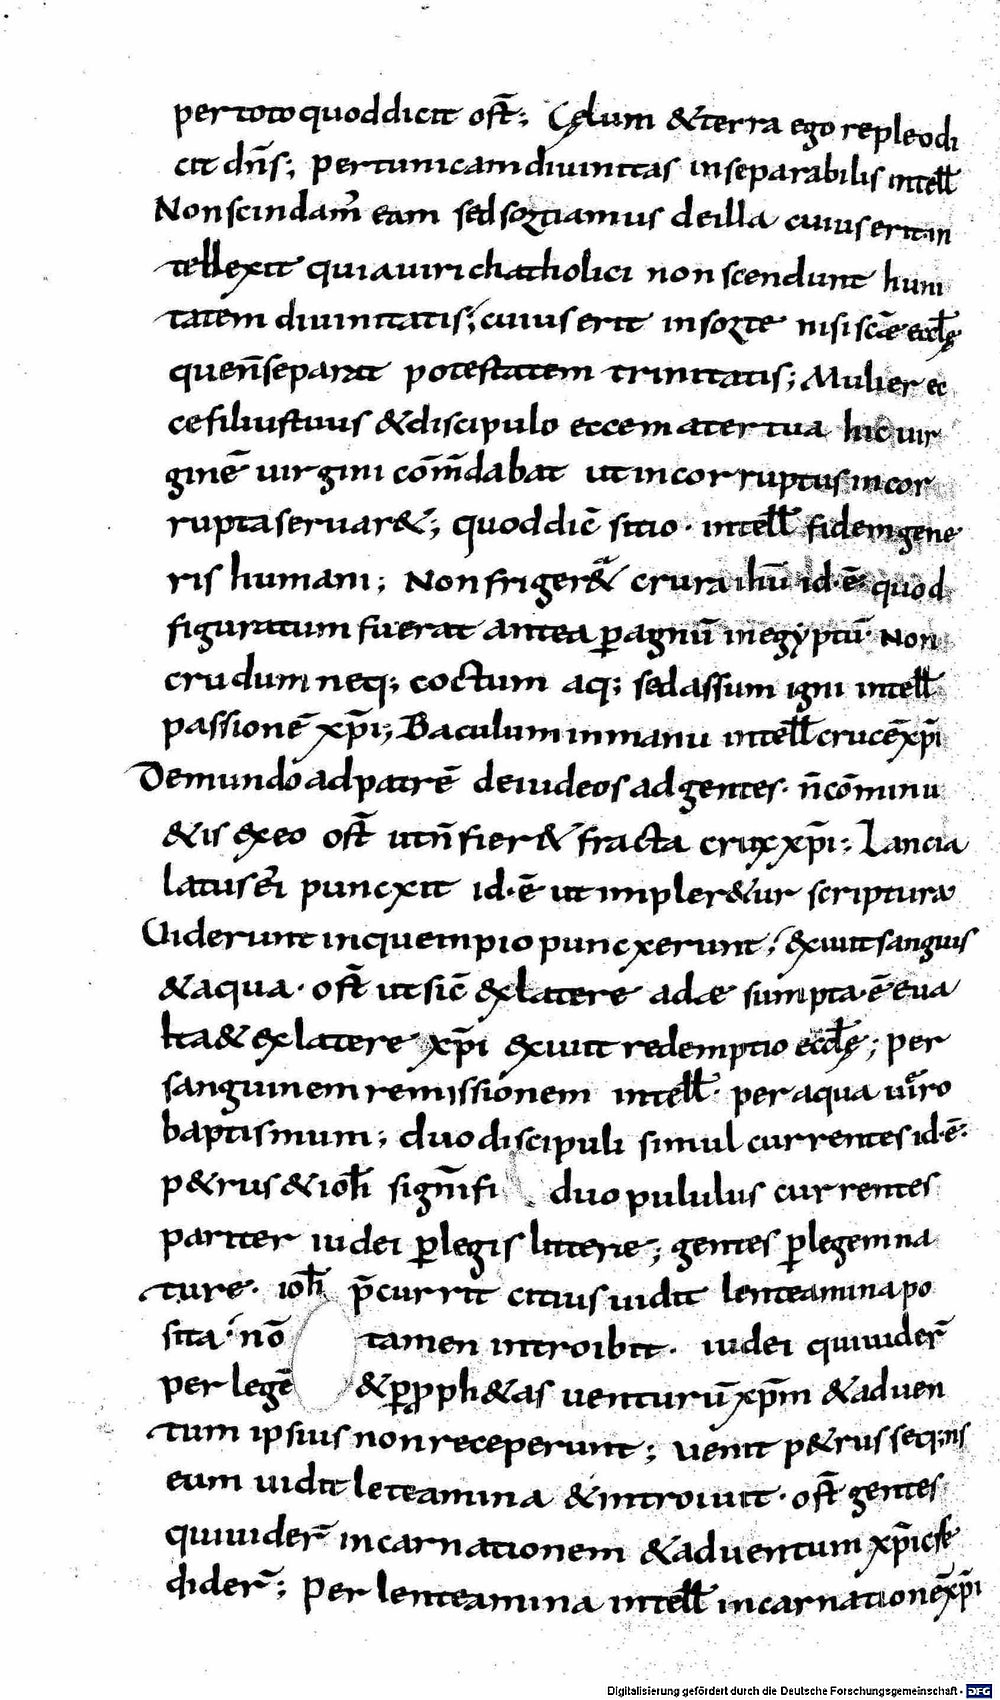 per toto quod dicit ost̄; Cęlum & terra ego repleo di
cit dn̄s; per tunicam diuinitas inseparabilis intell̄
Non scindam̄ eam sed sortiamus de illa cuius erit in
tellexit quia uiri chatholici non scendunt huni
tatem diuinitatis; cuius erit in sorte nisi scǣ eccl̄ę
quen̄ separat potestatem trinitatis; Mulier ec
ce filius tuus & discipulo ecce mater tua hic uir
ginē uirgini com̄dabat ut incorruptus incor
rupta seruar&; quod dic̄ sitio · intell̄ fidem gene
ris humani; Non friger& crura ihū id·ē· quod
figuratum fuerat antea p̄ agnū in egyptū · Non
crudum neq; coctum aq; sed assum igni intell̄
passionē xp̄i; Baculum in manu intell̄ crucē xp̄i
De mundo ad patrē de iudeos ad gentes · n̄ cōminu
&is ex eo ost̄ ut n̄ fier& fracta crux xp̄i; Lancia
latus ei puncxit id·ē ut impler&ur scriptura
Uiderunt in quem pio puncxerunt; exiuit sanguis
& aqua · ost̄ ut sic̄ ex latere adæ sumpta·ē eua
Ita & ex latere xp̄i exiuit redemptio eccl̄ę; per
sanguinem remissionem intell̄ · per aqua uiro
baptismum; duo discipuli simul currentes id·ē·
p&rus & ioh̄ signifi duo pululus currentes
pariter iudei p̄ legis littere; gentes p̄ legem na
ture · ioh̄ p̄currit citius uidit lenteamina po
sita · nō tamen introibit · iudei qui uider̄
per legē & p̄ proph&as uenturū xp̄m & aduen
tum ipsius non receperunt; uenit p&rus seq;ns
eum uidit leteamina & introiuit · ost̄ gentes
qui uider̄ incarnationem & aduentum xp̄i
dider̄; Per lenteamina intell̄ incarnationē xp̄i
Digitalisierung gefördert durch die Deutsche Forschungsgemeinschaft - DFG